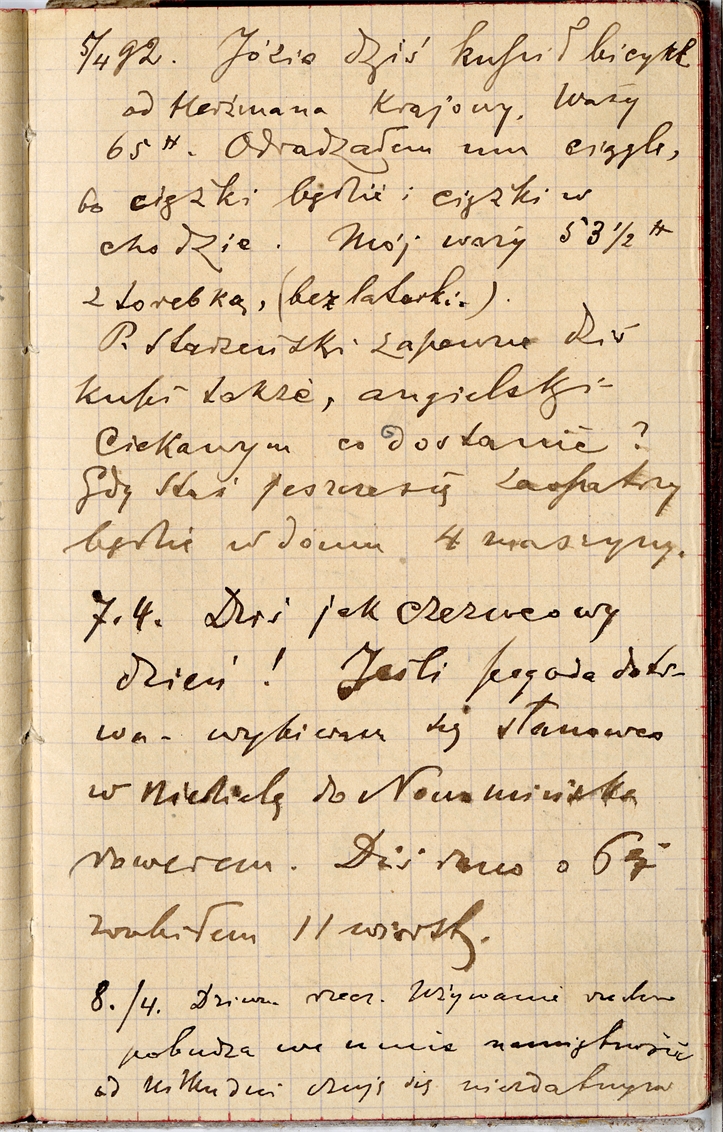 5/4 92. Józio dziś kupił bicykl
od Herzmana Krajowy. Waży
65 ℔. Odradzałem mu ciągle,
bo ciężki będzie i ciężki w
chodzie. Mój waży 53 1/2 ℔
z torebką, (bez latarki.)
P. Starzeński zapewne dziś
kupi także, angielski-
Ciekawym co dostanie?
Gdy Staś jeszcze się zaopatrzy
będzie w domu 4 maszyny.
7.4. Dziś jak czerwcowy
dzień! Jeśli pogoda dotr-
wa- wybieram się stanowczo
w niedzielę do Nowomińska
rowerem. Dziś rano o 6ej
zrobiłem 11 wiorst.
8./4. Dziwna rzecz. Używanie ruchu
pobudza we mnie namiętność
od kilku dni czuję się niezdatnym